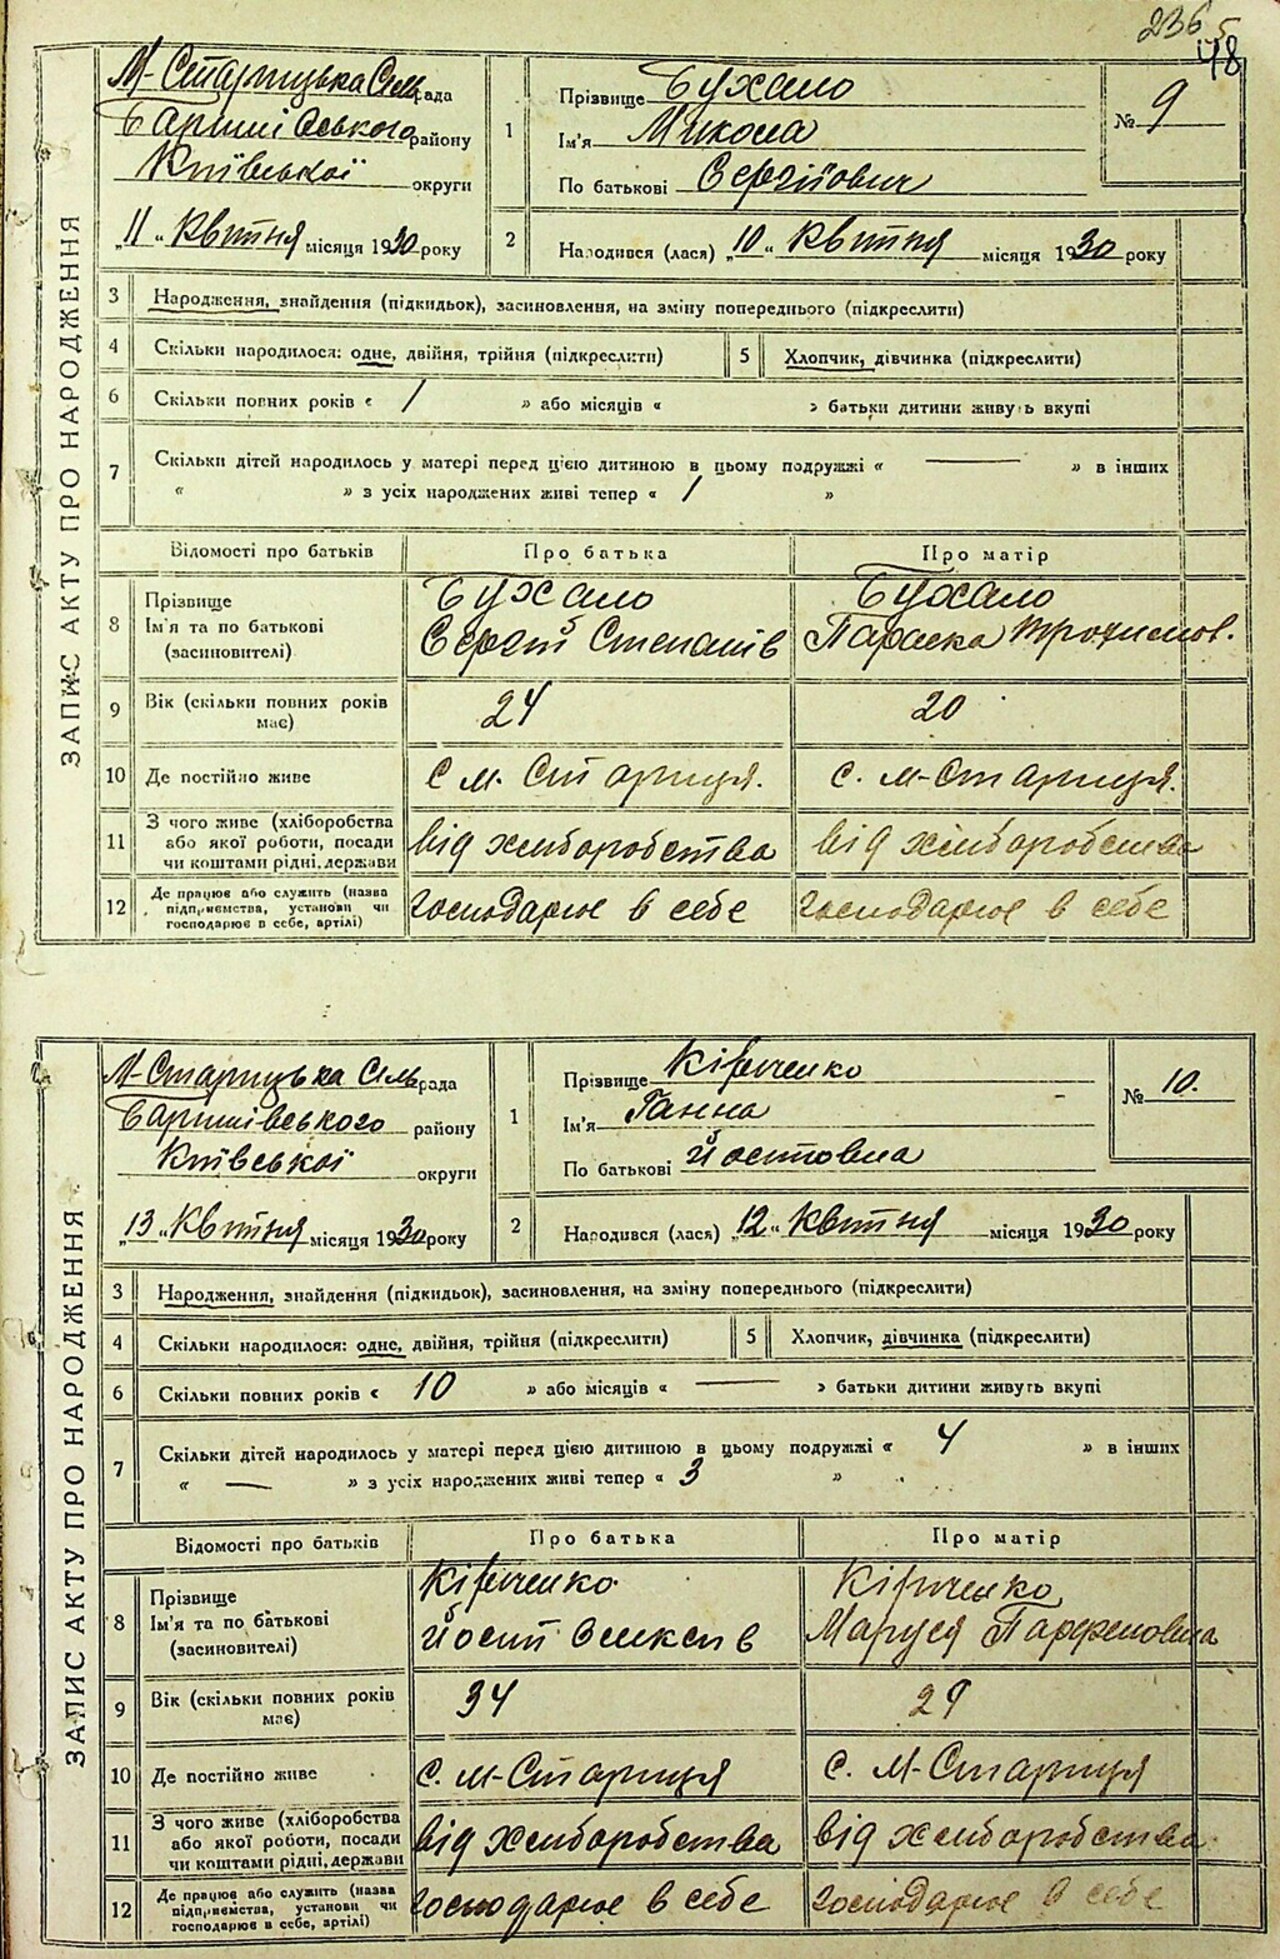 236
48
ЗАПИС АКТУ ПРО НАРОДЖЕННЯ
М-Старицька Сільрада
Баришівського району
Київської округи
„11„ Квітня місяця 1930 року
1
Прізвище Бухало
Ім'я Микола
По батькові Сергійович
№ 9
2
Народився (лася) „10„ Квітня місяця 1930 року
3 Народження, знайдення (підкидьок), засиновлення, на зміну попереднього (підкреслити)
4 Скільки народилося: одне, двійня, трійня (підкреслити) 5 Хлопчик, дівчинка (підкреслити)
6 Скільки повних років « 1 » або місяців « » батьки дитини живуть вкупі
7 Скільки дітей народилось у матері перед цією дитиною в цьому подружжі « — » в інших
« » з усіх народжених живі тепер « 1 »
Відомості про батьків Про батька Про матір
8 Прізвище Бухало Бухало
Ім'я та по батькові Сергій Степанів Параска Трохимов.
(засиновителі)
9 Вік (скільки повних років має) 24 20
10 Де постійно живе С М. Стариця. с. М-Стариця.
11 З чого живе (хліборобства
або якої роботи, посади від хліборобства від хліборобства
чи коштами рідні, держави
12 Де працює або служить (назва
підприємства, установи чи господарює в себе господарює в себе
господарює в себе, артілі)
ЗАПИС АКТУ ПРО НАРОДЖЕННЯ
М-Старицька Сільрада
Баришівського району
Київської округи
„13„ Квітня місяця 1930 року
1
Прізвище Кириченко
Ім'я Ганна
По батькові Йостовна
№ 10.
2
Народився (лася) „12„ Квітня місяця 1930 року
3 Народження, знайдення (підкидьок), засиновлення, на зміну попереднього (підкреслити)
4 Скільки народилося: одне, двійня, трійня (підкреслити) 5 Хлопчик, дівчинка (підкреслити)
6 Скільки повних років « 10 » або місяців « — » батьки дитини живуть вкупі
7 Скільки дітей народилось у матері перед цією дитиною в цьому подружжі « 4 » в інших
« — » з усіх народжених живі тепер « 3 »
Відомості про батьків Про батька Про матір
8 Прізвище
Ім'я та по батькові Йосип Маруся Парфеновна
(засиновителі)
9 Вік (скільки повних років має) 34 29
10 Де постійно живе с. М-Стариця с. М-Стариця
11 З чого живе (хліборобства
або якої роботи, посади від хліборобства від хліборобства
чи коштами рідні, держави
12 Де працює або служить (назва
підприємства, установи чи господарює в себе господарює в себе
господарює в себе, артілі)